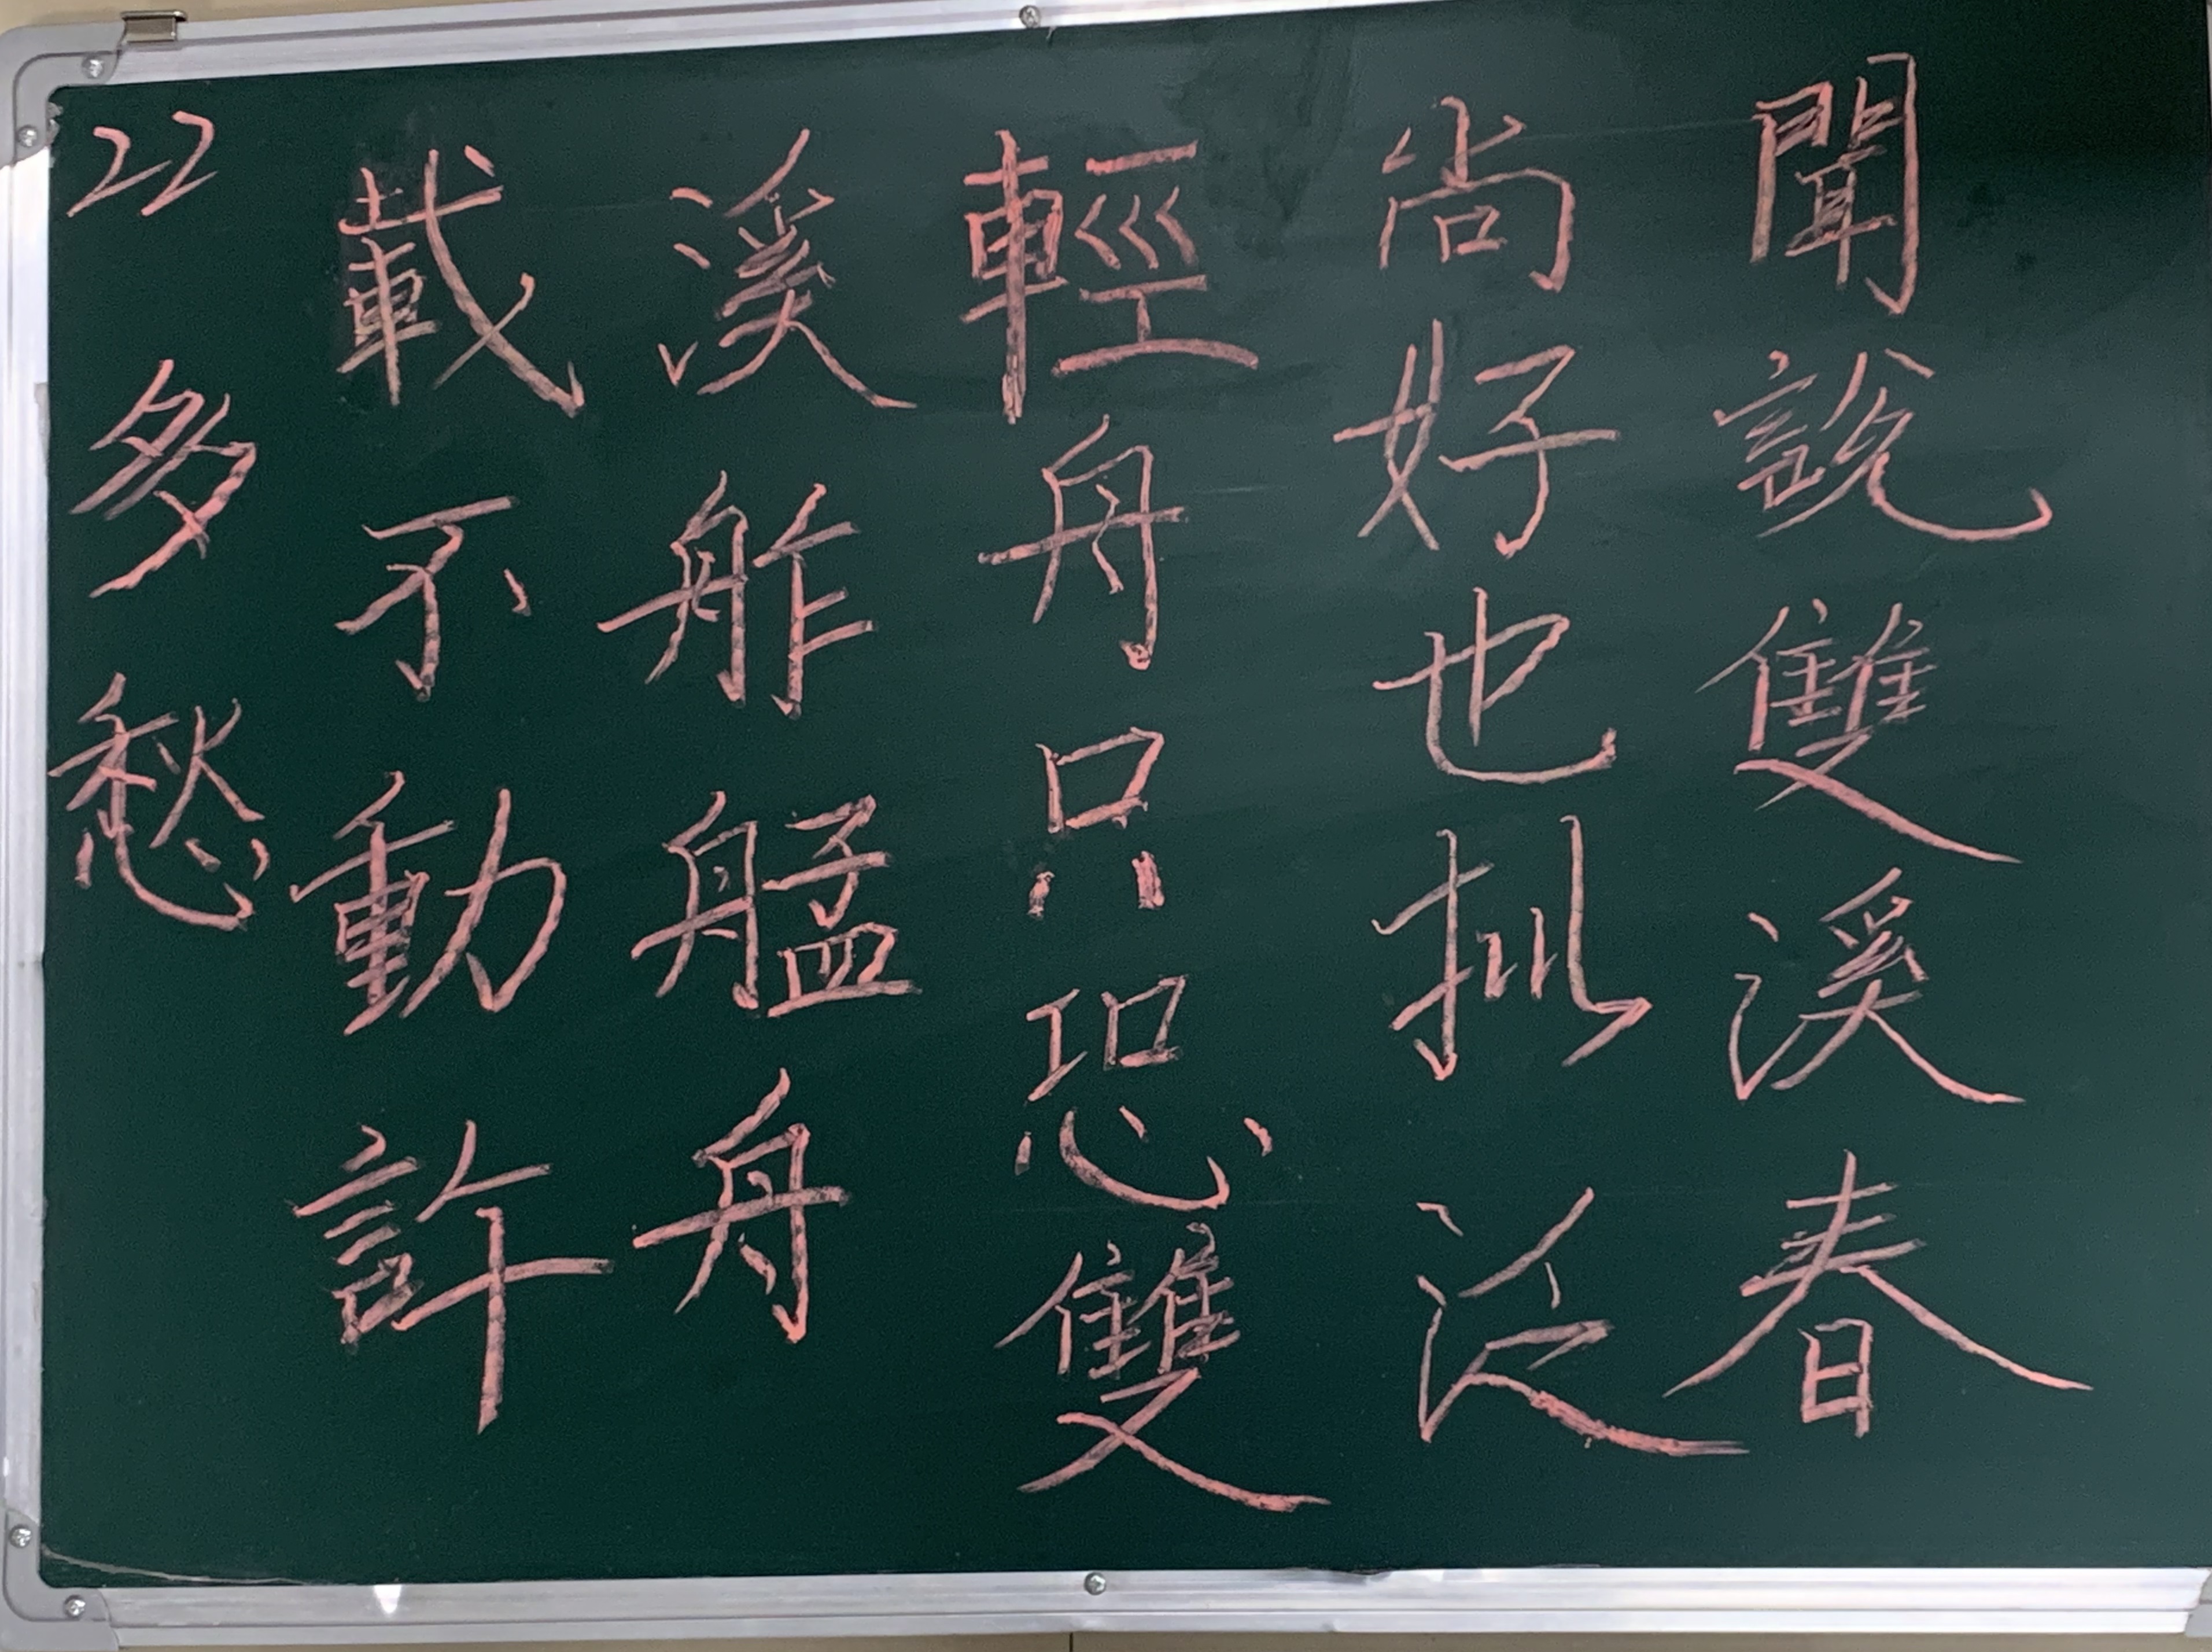 聞說雙溪春
尚好也拟泛
輕舟只恐雙
溪舴艋舟
載不動許
22多愁